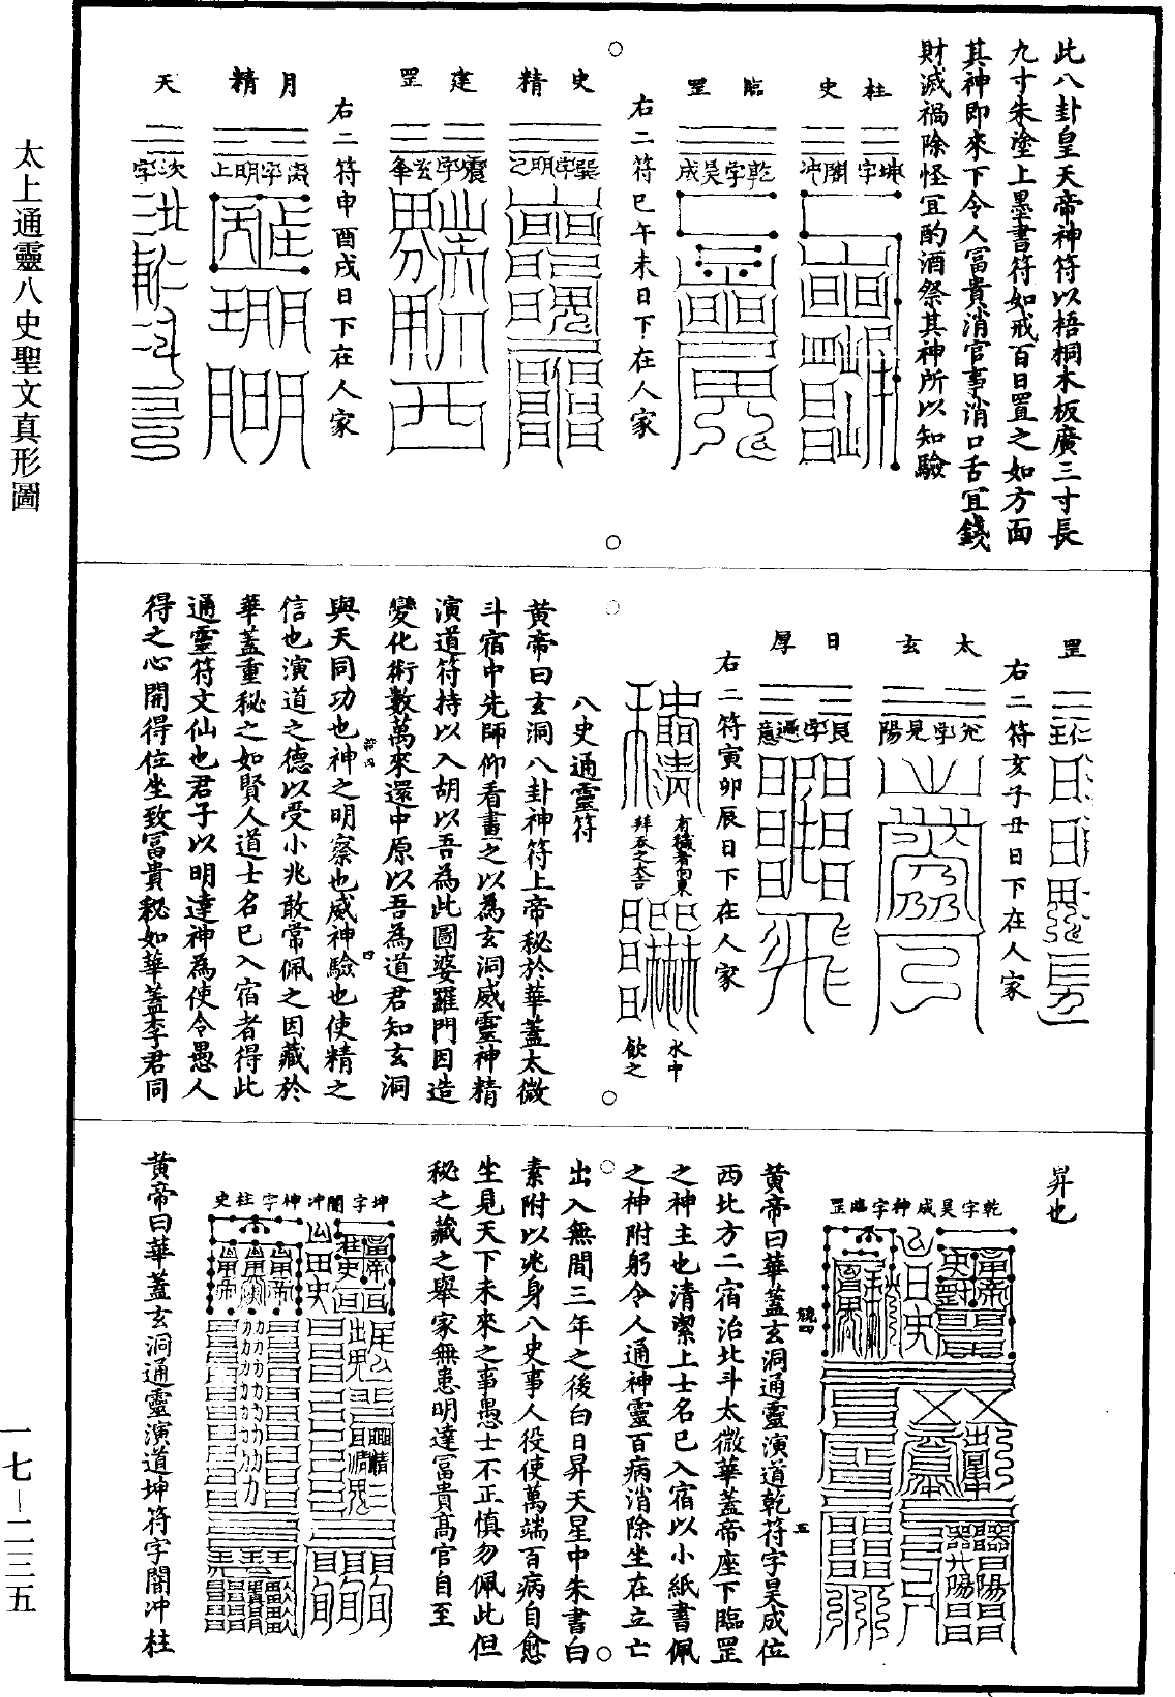 太上通靈八史聖文真形圖
此八卦皇天帝神符以梧桐木板廣三寸長
九寸朱塗上墨書符如戒百日置之如方面
其神即來下令人富貴消官事消口舌宜錢
財滅禍除怪宜酌酒祭其神所以知驗
柱史
坤字闇冲
臨罡
乾字昊成
右二符巳午未日下在人家
史精
巽字明之
建罡
震字
右二符申酉戌日下在人家
月精
离字明上
天
坎字
罡
仁王
右二符亥子丑日下在人家
太玄
兊字見陽
日厚
艮字遁意
右二符寅卯辰日下在人家
水中
飲之
八史通靈符
黃帝曰玄洞八卦神符上帝秘於華蓋太微
斗宿中先師仰看畫之以為玄洞威靈神精
演道符持以入胡以吾為此圖婆羅門因造
變化術數萬來還中原以吾為道君知玄洞
與天同功也神之明察也威神驗也使精之
信也演道之德以受小兆敢常佩之因藏於
華蓋重秘之如賢人道士名巳入宿者得此
通靈符文仙也君子以明達神為使令愚人
得之心開得位坐致冨貴秘如華蓋李君同
昇也
乾字昊成神字臨罡
黃帝曰華蓋玄洞通靈演道乾符字昊成位
西北方二宿治北斗太微華蓋帝座下臨罡
之神主也清潔上士名巳入宿以小紙書佩
之神附躬令人通神靈百病消除坐在立亡
出入無間三年之後白日昇天星中朱書白
素附以兆身八史事人役使萬端百病自愈
坐見天下未來之事愚士不正慎勿佩此但
秘之藏之舉家無患明達冨貴高官自至
坤字闇冲神字柱史
黃帝曰華蓋玄洞通靈演道坤符字闇冲柱
一七—二三五